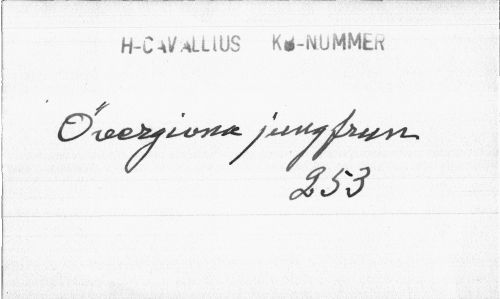 H-CAVALLIUS KB-NUMMER
Övergivna jungfrun
253